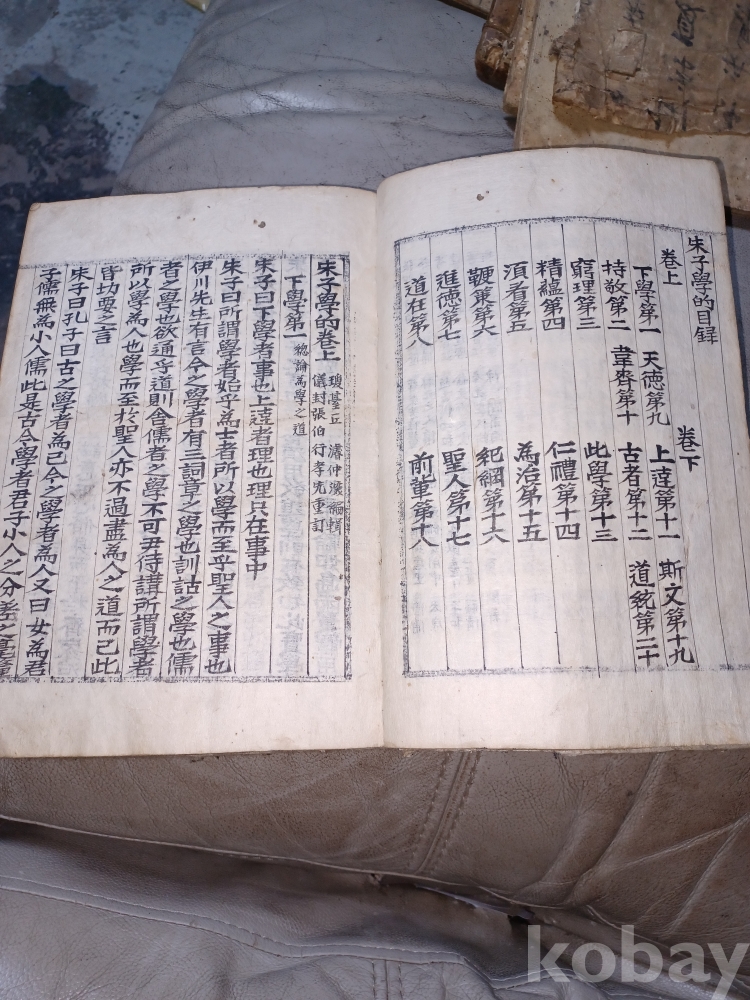 朱子學的目録
卷上 卷下
下學第一 天德第九 上達第十一 斯文第十九
持敬第二 韋齋第十 古者第十二 道統第二十
窮理第三 此學第十三
精蘊第四 仁禮第十四
須看第五 為治第十五
鞭策第六 紀綱第十六
進德第七 聖人第十七
道在第八 前輩第十八
朱子學的卷上 瓊臺丘 濬仲深編輯
儀封張伯 行孝先重訂
下學第一 總論為學之道
朱子曰下學者事也上達者理也理只在事中
朱子曰所謂學者始乎為士者所以學而至乎聖人之事也
伊川先生有言今之學者有三詞章之學也訓詁之學也儒
者之學也欲通乎道則舍儒者之學不可尹侍講所謂學者
所以學為人也學而至於聖人亦不過盡為人之道而已此
皆切要之言
朱子曰孔子曰古之學者為己今之學者為人又曰女為君
子儒無為小人儒此是古今學者君子小人之分差之毫釐
kobay